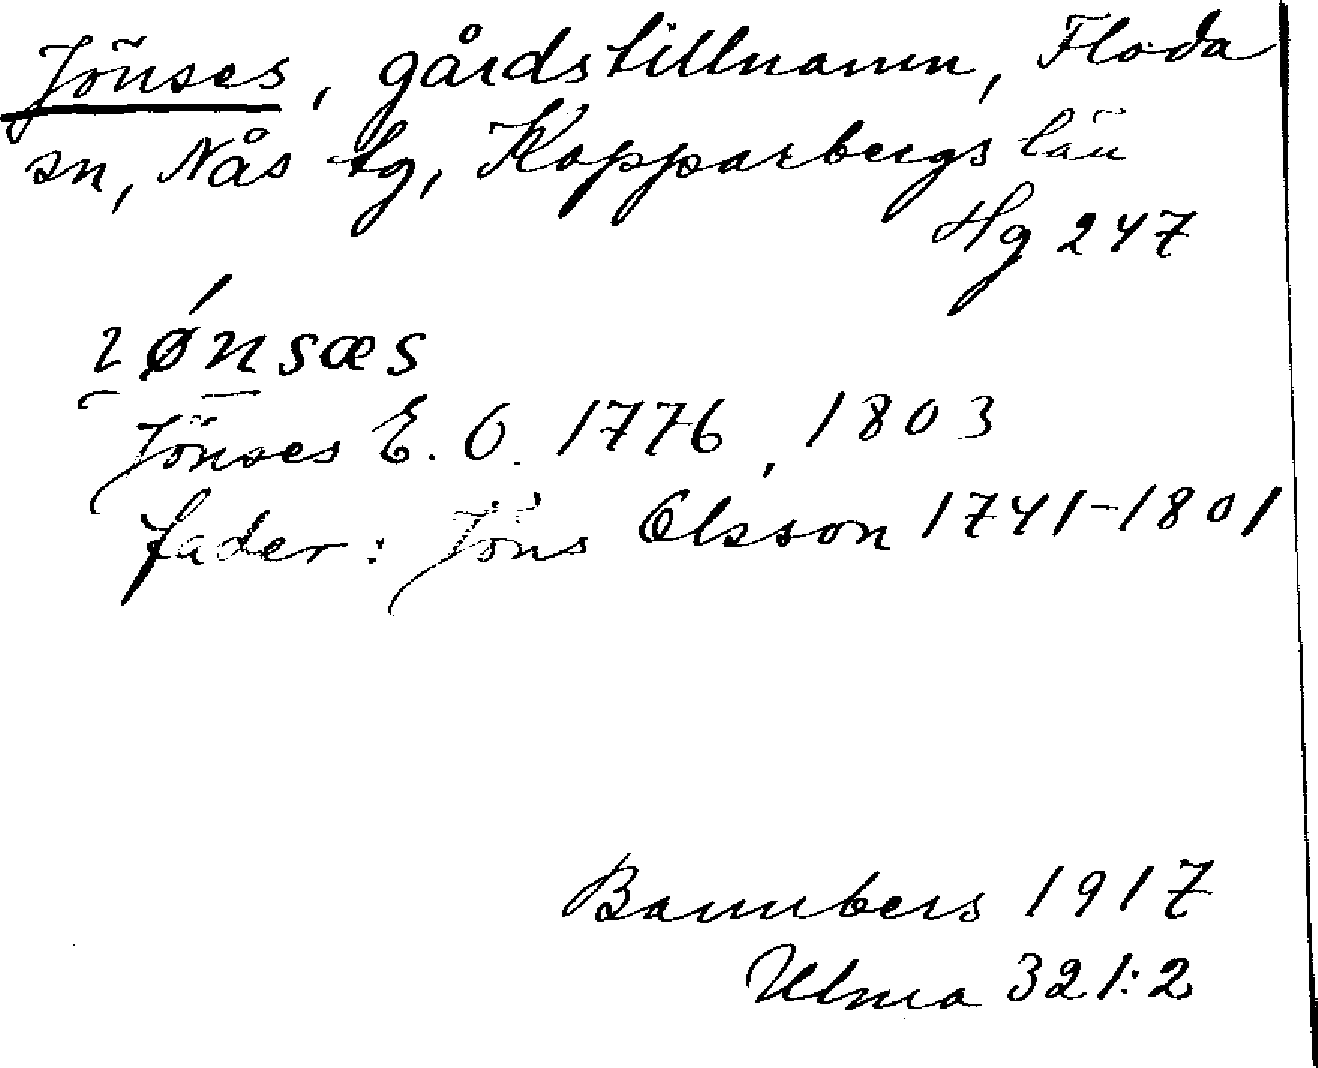 Jönses, gårdstillnamn, Floda
sn, Nås tg, Kopparbergs län
Hg 247
Jönses E. O. 1776, 1803
fader: Jöns Olsson 1741-1801
Bannbers 1917
Ulma 321:2